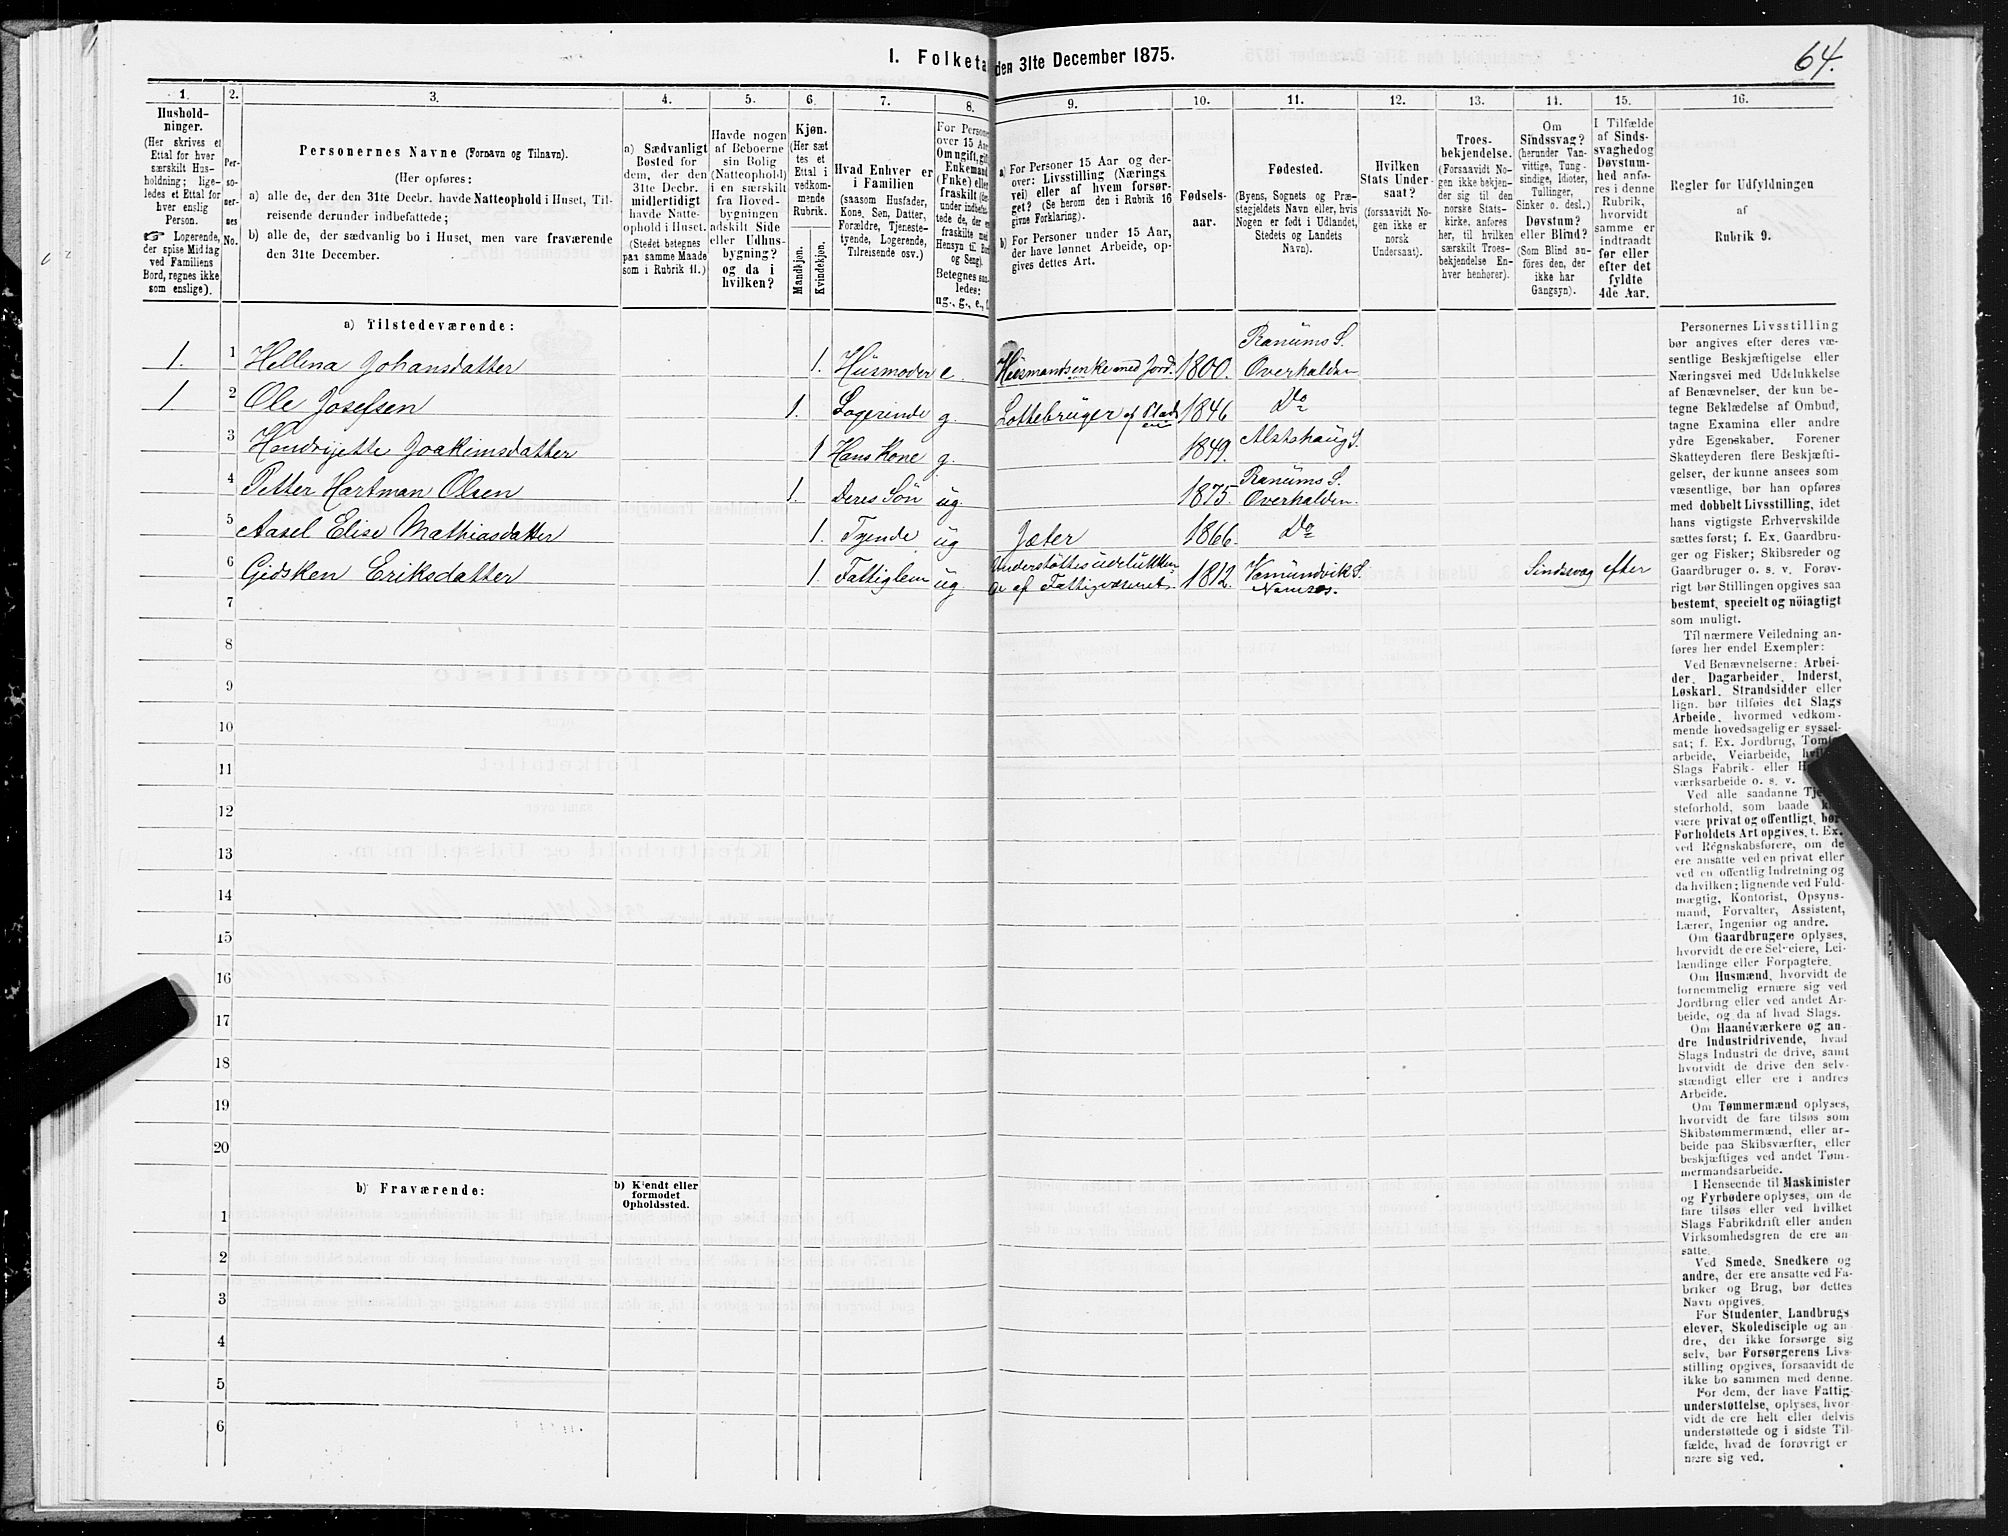 64.
I. Folketa den 31te December 1875.
1. 2. 3. 4. 5. 6. 7. 8. 9. 10. 11. 12. 13. 14. 15. 16.
Hushold-
ninger.
(Her skrives et
Ettal for hver
særskilt Hus-
holdning; lige-
ledes et Ettal for
hver enslig
Person.
☞ Logerende,
der spise Middag
ved Familiens
Bord, regnes ikke
som enslige).
Per-
so-
ner-
nes
No.
Personernes Navne (Fornavn og Tilnavn).
(Her opføres:
a) alle de, der den 31te Decbr. havde Natteophold i Huset, Til-
reisende derunder indbefattede;
b) alle de, der sædvanlig bo i Huset, men vare fraværende
den 31te December.
a) Sædvanligt
Bosted for
dem, der den
31te Decbr.
midlertidigt
havde Natte-
ophold i Huset.
(Stedet betegnes
paa samme Maade
som i Rubrik 11.)
Havde nogen
af Beboerne
sin Bolig
(Natteophold)
i en særskilt
fra Hoved-
bygningen
adskilt Side
eller Udhus-
bygning?
og da i
hvilken?
Kjøn.
(Her sæt
tes et
Ettal i
vedkom-
mende
Rubrik.
Mandkjøn.
Kvindekjøn.
Hvad Enhver er
i Familien
(saasom Husfader,
Kone, Søn, Datter,
Forældre, Tjeneste-
tyende, Logerende,
Tilreisende osv.)
For Persone
over 15 Aar
Om ugift, gif
Enkemand
(Enke) elle
fraskilt (de
under indbefat
tede de, der er
fraskilte med
Hensyn til Bord
og Seng).
Betegnes saa-
ledes:
ug., g., e., f.
a) For Personer 15 Aar og der-
over: Livsstilling (Nærings
vei) eller af hvem forsør-
get? (Se herom den i Rubrik 16
givne Forklaring).
b) For Personer under 15 Aar,
der have lønnet Arbeide, op-
gives dettes Art.
Fødsels-
aar.
Fødested.
(Byens, Sognets og Præ-
stegjeldets Navn eller, hvis
Nogen er født i Udlandet,
Stedets og Landets
Navn).
Hvilken
Stats Under
saat?
(forsaavidt No-
gen ikke er
norsk
Undersaat).
Troes-
bekjendelse.
(Forsaavidt No-
gen ikke bekjen-
der sig til den
norske Stats-
kirke, anføres
her, til hvilken
særskilt Troes-
bekjendelse En-
hver henhører).
Om
Sindssvag?
(herunder Van-
vittige, Tung
sindige, Idioter,
Tullinger,
Sinker o. desl.)
Døvstum?
eller Blind?
(Som Blind an-
føres den, der
ikke har
Gangsyn).
I Tilfælde
af Sinds-
svaghed og
Døvstum-
hed anfø-
res i denne
Rubrik,
hvorvidt
samme er
indtraadt
før eller
efter det
fyldte
4de Aar.
Regler for Udfyldningen
af
Rubrik 9.
a) Tilstedeværende:
1. 1 Hellena Johansdatter 1. Husmoder e. Husmandsenke med Jord. 1800. Ranums S. Overhalden
1 2 Ole Josefsen 1. Logerende g. Lottebruger af Pladsene 1846 Do
3 Hendrijette Joakimsdatter 1 Hans Kone g. 1849. Alstahaug S.
4 Petter Hartman Olsen 1. Deres Søn ug. 1875. Ranums S. Overhalden.
5 Aasel Elise Mathiasdatter 1. Tyende ug Jæter 1866. Do
6 Gidsken Eriksdatter 1. Fattiglem ug Understøttes udelukken- de af Fattigvæsenet. 1812. Vemundvik S. Namsos. Sindsvag efter
7
8
9
10
11
12
13
14
15
16
17
18
19
20
b) Fraværende:
b) Kjendt eller
formodet
Opholdssted.
1
2
3
4
5
6
Personernes Livsstilling
bør angives efter deres væ-
sentlige Beskjæftigelse eller
Næringsvei med Udelukkelse
af Benævnelser, der kun be-
tegne Beklædelse af Ombud,
tagne Examina eller andre
ydre Egenskaber. Forener
Skatteyderen flere Beskjæfti-
gelser, der kunne ansees som
væsentlige, bør han opføres
med dobbelt Livsstilling, idet
hans vigtigste Erhvervskilde
sættes først; f. Ex. Gaardbru-
ger og Fisker; Skibsreder og
Gaardbruger o. s. v. Forøv-
rigt bør Stillingen opgives saa
bestemt, specielt og nöiagtigt
som muligt.
Til nærmere Veiledning an-
føres her endel Exempler:
Ved Benævnelserne: Arbei-
der, Dagarbeider, Inderst,
Løskarl, Strandsidder eller
lign. bør tilføies det Slags
Arbeide, hvormed vedkom-
mende hovedsagelig er syssel-
sat; f. Ex. Jordbrug, Tomte-
arbeide, Veiarbeide,
Slags Fabrik- eller
værksarbeide o. s. v.
Ved alle saadanne
steforhold, som baade
være privat og offentligt, bør
Forholdets Art opgives, t. Ex.
ved Regnskabsførere, om de
ere ansatte ved en privat eller
ved en offentlig Indretning og
da hvilken; lignende ved Fuld-
mægtig, Kontorist, Opsyns-
mand, Forvalter, Assistent,
Lærer, Ingeniør og andre.
Om Gaardbrugere oplyses,
hvorvidt de ere Selveiere, Lei-
lændinge eller Forpagtere.
Om Husmænd, hvorvidt de
fornemmelig ernære sig ved
Jordbrug eller ved andet Ar-
beide, og da af hvad Slags.
Om Haandværkere og an-
dre Industridrivende, hvad
Slags Industri de drive, samt
hvorvidt de drive den selv-
stændigt eller ere i andres
Arbeide.
Om Tømmermænd oplyses,
hvorvidt de fare tilsøs som
Skibstømmermænd, eller ar-
beide paa Skibsværfter, eller
beskjæftiges ved andet Tøm-
mermandsarbeide.
I Henseende til Maskinister
og Fyrbødere oplyses, om de
fare tilsøs eller ved hvilket
Slags Fabrikdrift eller anden
Virksomhedsgren de ere an-
satte.
Ved Smede, Snedkere og
andre, der ere ansatte ved Fa-
briker og Brug, bør dettes
Navn opgives.
For Studenter, Landbrugs
elever, Skoledisciple og an
dre, der ikke forsørge sig
selv, bør Forsørgerens Livs-
stilling opgives, forsaavidt de
ikke bo sammen med denne.
For dem, der have Fattig
understøttelse, oplyses, hvor-
vidt de ere helt eller delvis
understøttede og i sidste Til-
fælde, hvad de forøvrigt er
nære sig ved.